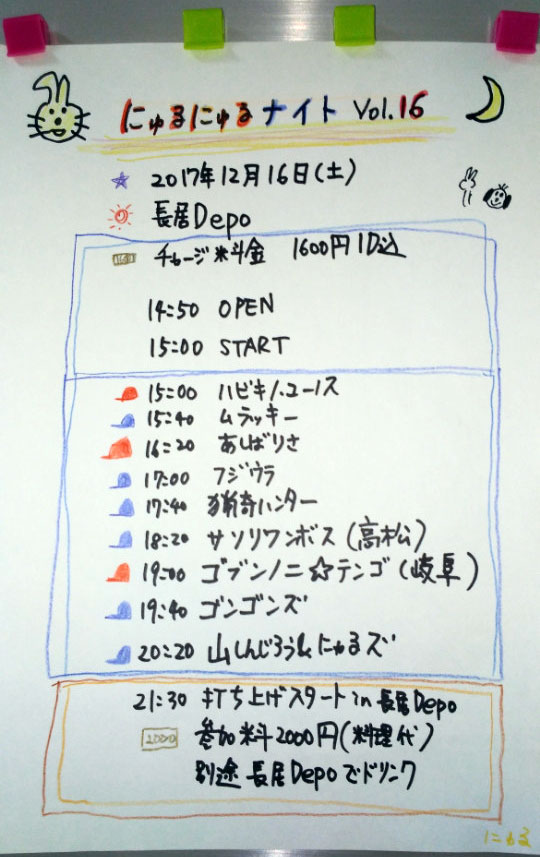 にゅるにゅるナイト Vol.16
2017年12月16日(土)
長居Depo
チャージ料金 1600円1D込
14:50 OPEN
15:00 START
15:00 ハビキノ.ユース
15:40 ムラッキー
16:20 あしばりさ
17:00 フジウラ
17:40 猟奇ハンター
18:20 サソリワンボス(高松)
19:00 ゴブンノニ☆テンゴ(岐阜)
19:40 ゴンゴンズ
20:20 山しんじろう&にゅるズ
21:30 打ち上げスタート in 長居Depo
2000 参加料2000円(料理代)
別途 長居Depoでドリンク
にゅる